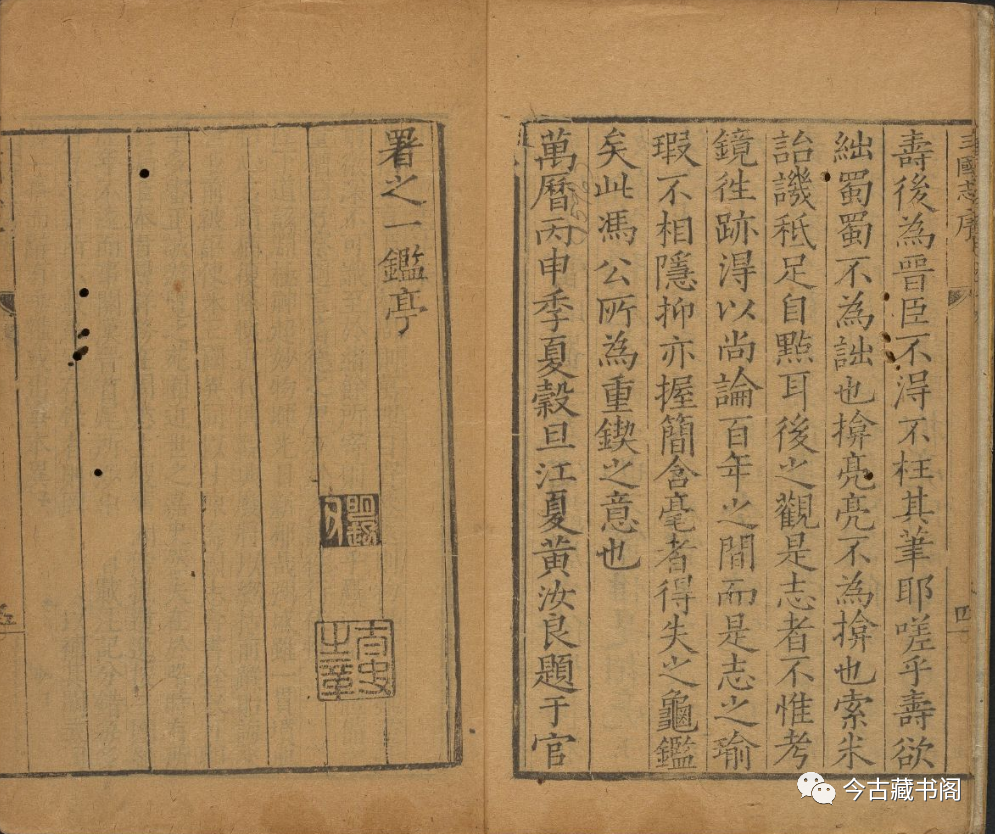 三國志序
四
壽後為晉臣不淂不枉其筆耶嗟乎壽欲
絀蜀蜀不為詘也揜亮亮不為揜也索米
詒譏秖足自點耳後之觀是志者不惟考
鏡徃跡淂以尚論百年之間而是志之瑜
瑕不相隱抑亦握簡含毫者得失之龜鑑
矣此馮公所為重鍥之意也
萬曆丙申季夏穀旦江夏黃汝良題于官
署之一鑑亭
太史之章
今古藏书阁